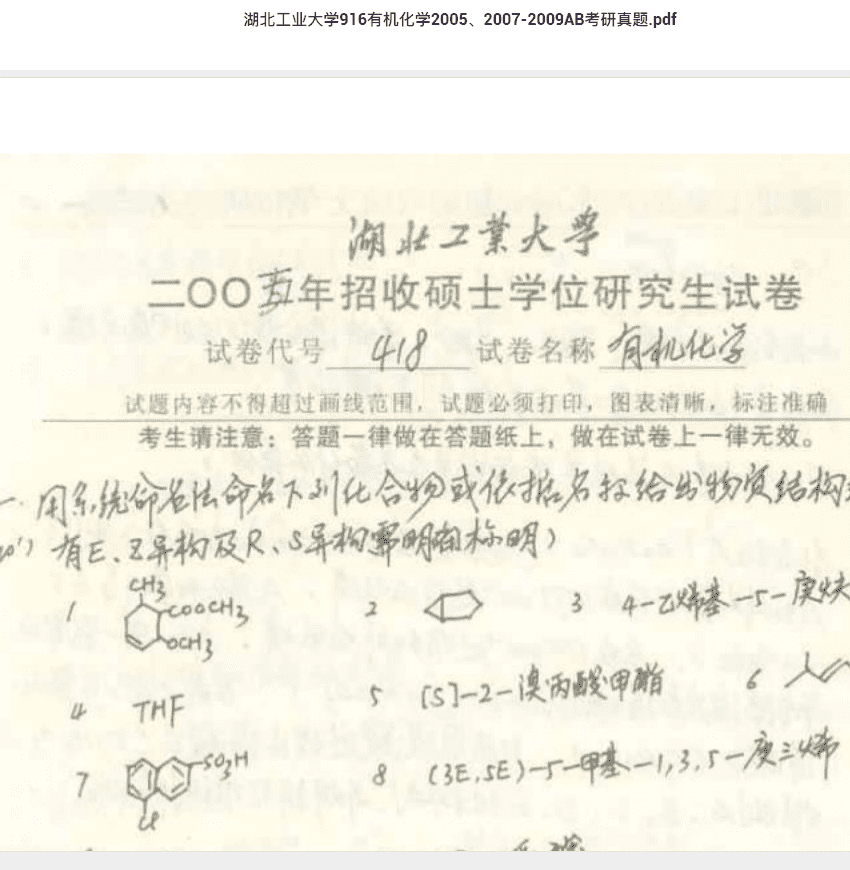 湖北工业大学916有机化学2005、2007-2009AB考研真题.pdf
湖北工業大学
二〇〇五年招收硕士学位研究生试卷
试卷代号 418 试卷名称 有机化学
试题内容不得超过画线范围，试题必须打印，图表清晰，标注准确
考生请注意：答题一律做在答题纸上，做在试卷上一律无效。
一. 用系统命名法命名下列化合物或依据名称给出物质结构
20') 有E、Z异构及R、S异构需明确标明)
1 CH3 COOCH3 OCH3 2 3 4-乙烯基-5-庚炔
4 THF 5 [S]-2-溴丙酸甲酯 6
7 SO3H Cl 8 (3E,5E)-5-甲基-1,3,5-庚三烯